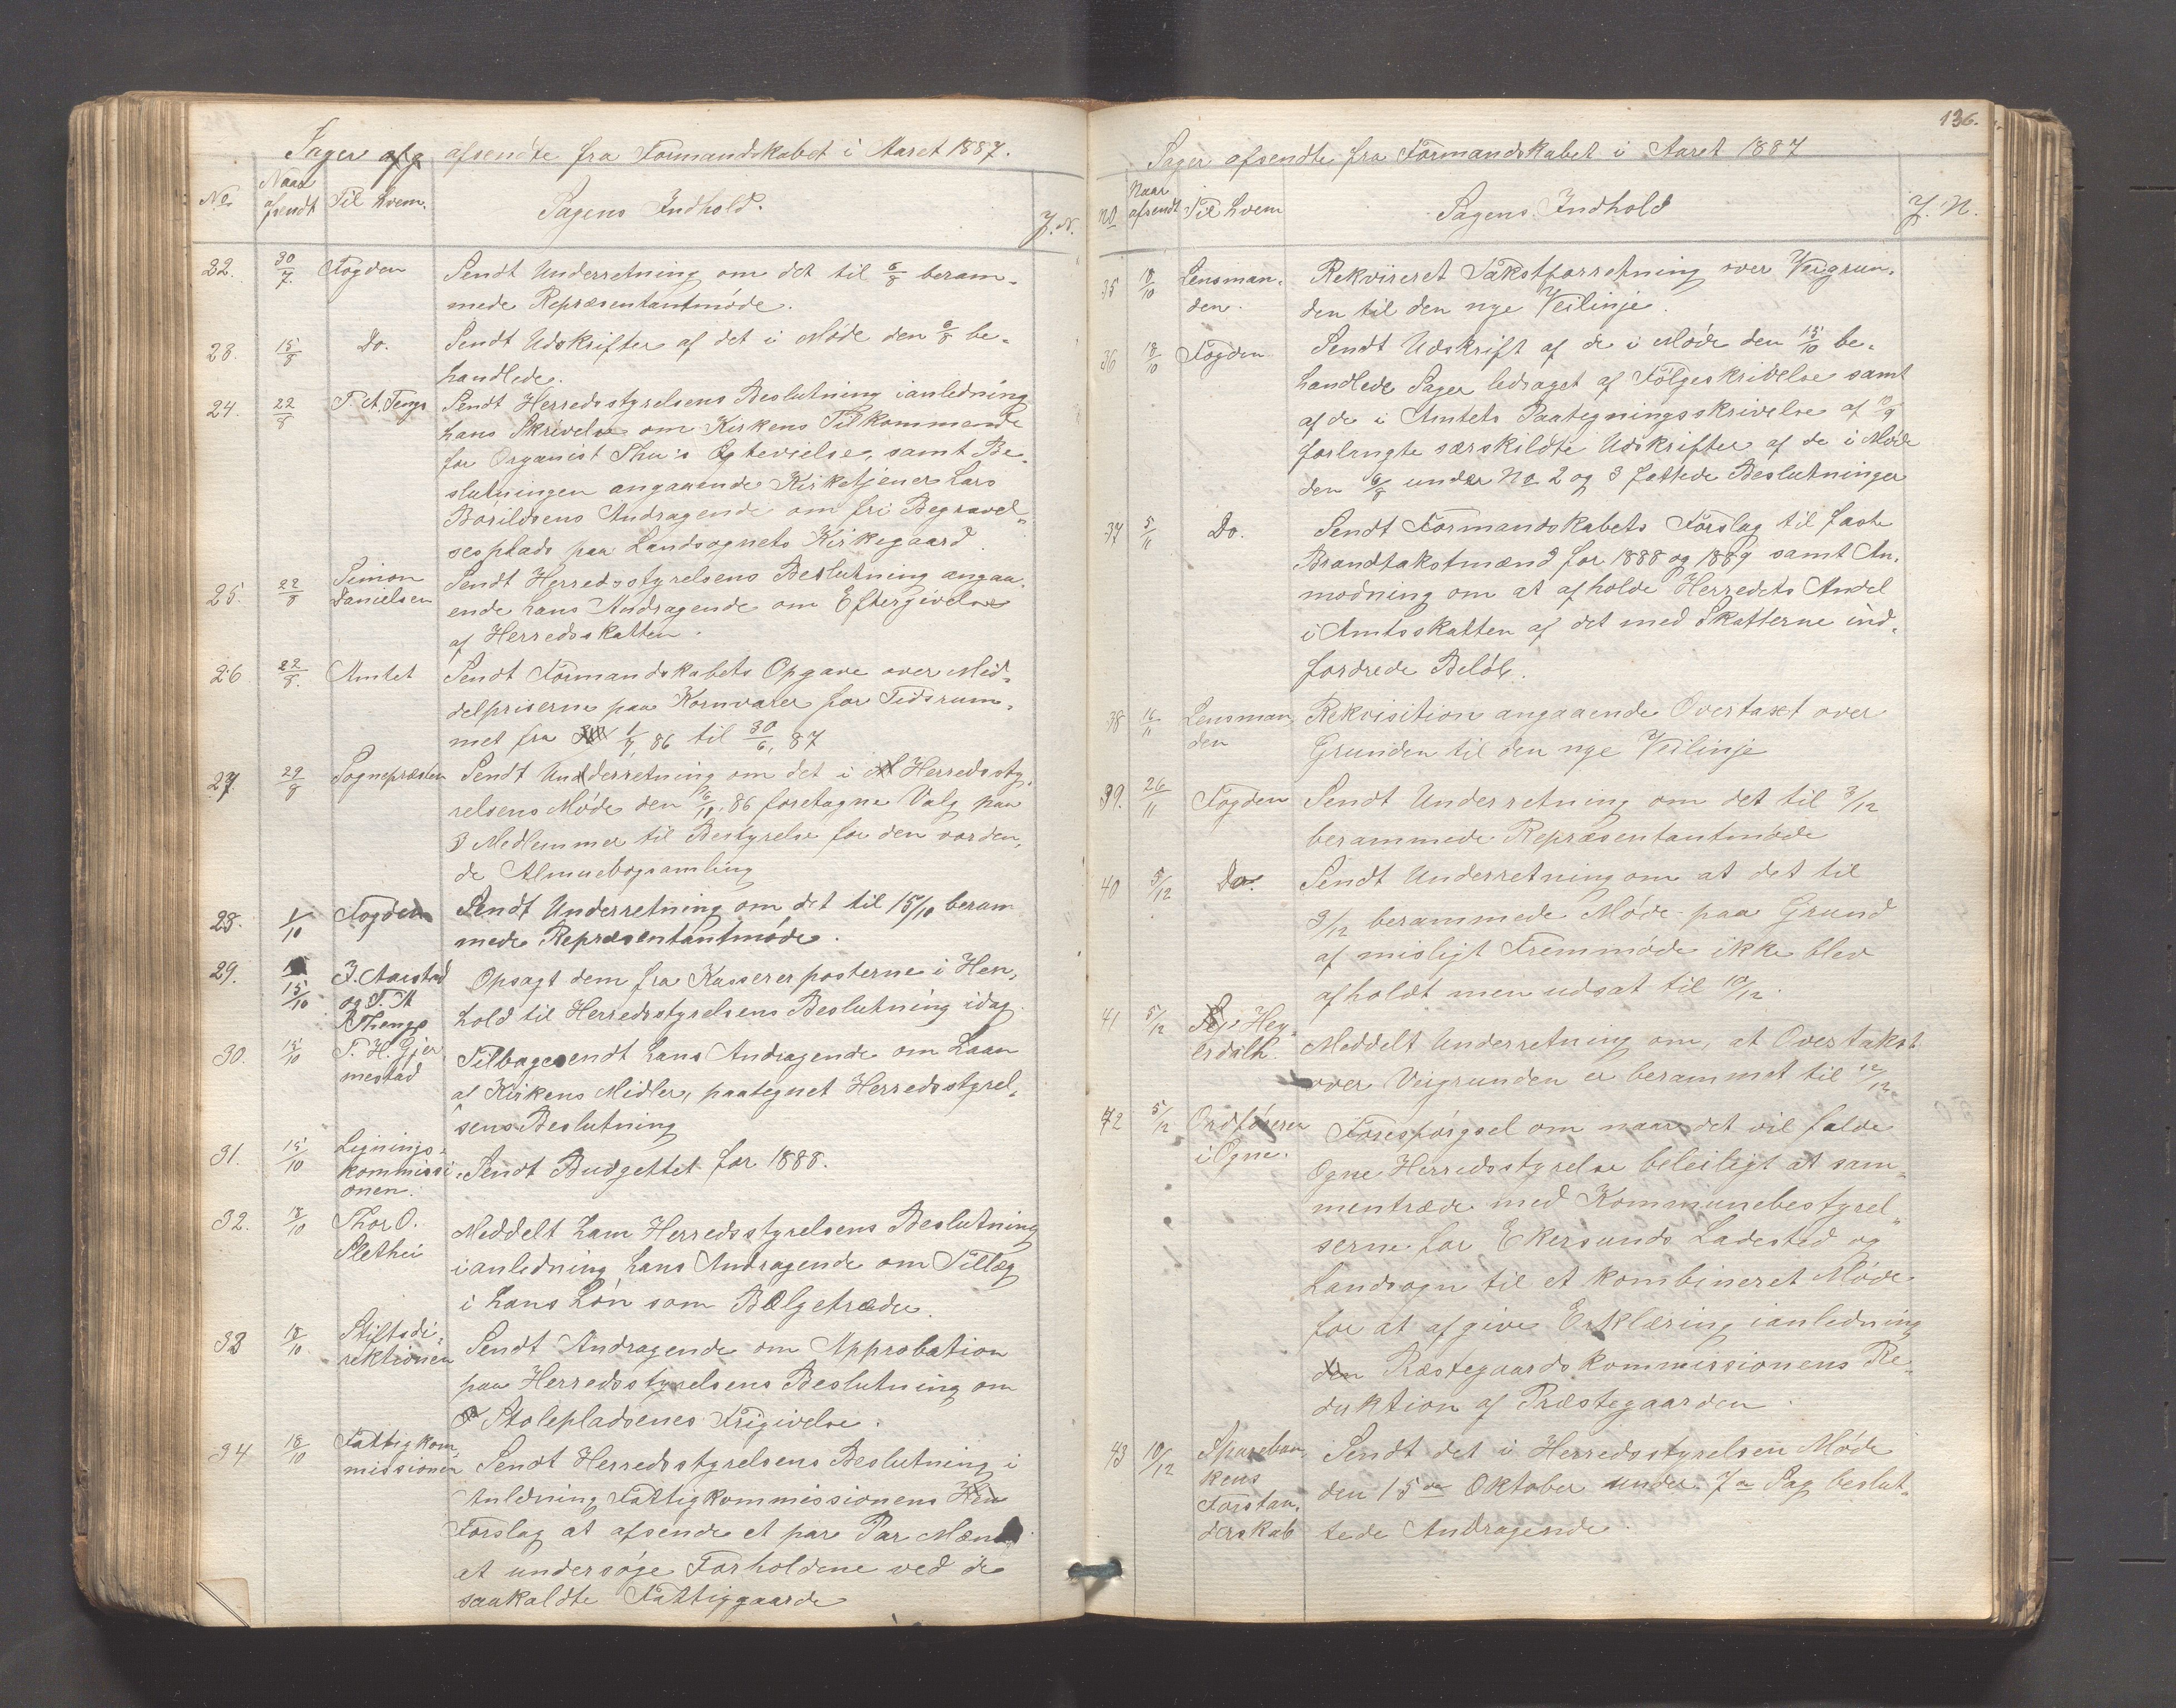 Sager afsendte fra Formandskabet i Aaret 1887.
No. Naar afsendt Til hvem. Sagens Indhold. J. N.
22. 30/7. Fogden Sendt Underretning om det til 6/8 beram-
mede Repræsentantmöde.
23. 15/8 Do. Sendt Udskrifter af det i Möde den 6/8 be-
handlede.
24. 22/8 T. A. Tengs Sendt Herredsstyrelsens Beslutning ianledning
hans Skrivelse om Kirkens Tilkommende
for Organist Thu's Egtevielse, samt Be-
slutningen angaaende Kirketjener Lars
Bórildsens Andragende om fri Begravel-
sesplads paa Landsognets Kirkegaard.
25. 22/8 Simon Danielsen Sendt Herredsstyrelsens Beslutning angaa-
ende hans Andragende om Eftergivelse
af Herredsskatten.
26 22/8. Amtet Sendt Formandskabets Opgave over Mid-
delpriserne paa Kornvarer for Tidsrum-
met fra 1/7, 86 til 30/6, 87
27 29/8 Sognepræsten Sendt Underretning om det i Herredssty-
relsens Möde den 86 foretagne Valg paa
3 Medlemmer til Bestyrelse for den vorden-
de Almuebogsamling
28. 1/10 Fogden Sendt Underretning om det til 15/10 beram
mede Repræsentantmöde.
29. 15/10 J. Aarstad og T. A Thengs Opsagt dem fra Kassererposterne i Hen-
hold til Herredsstyrelsens Beslutning idag.
30. 15/10 T. H. Gjermestad Tilbagesendt hans Andragende om Laan
af Kirkens Midler, paategnet Herredsstyrel-
sens Beslutning
31. 15/10 Lignings-kommissionen. Sendt Budgettet for 1888.
32. 18/10 Thor O. Slethei Meddelt ham Herredsstyrelsens Beslutning
ianledning hans Andragende om Tillæg
i hans Lön som Bælgetræder.
33 18/10. Stiftsdi-rektionen Sendt Andragende om Approbation
paa Herredsstyrelsens Beslutning om
Stolepladsenes Frigivelse.
34 18/10 Fattigkom-missionen Sendt Herredsstyrelsens Beslutning i
Anledning Fattigkommissionens
Forslag at afsende et par Par Mænd
at undersöge Forholdene ved de
saakaldte Fattiggaarde
136.
Sager afsendte fra Formandskabet i Aaret 1887
No Naar afsendt Til hvem Sagens Indhold J. N.
35 18/10 Lensman-den. Rekvireret Takstforretning over Veigrun-
den til den nye Veilinje.
36 18/10 Fogden Sendt Udskrift af de i Möde den 15/10 be-
handlede Sager ledsaget af Fölgeskrivelse samt
af de i Amtets Paategningsskrivelse af 10/9
forlangte særskildte Udskrifter af de i Möde
den 6/8 under No 2 og 3 fattede Beslutninger
37 5/11 Do. Sendt Formandskabets Forslag til faste
Brandtakstmænd for 1888 og 1889 samt An-
modning om at afholde Herredets Andel
i Amtsskatten af det med Skatterne ind-
fordrede Belöb.
38 16/11 Lensman-den Rekvisition angaaende Overtaxt over
Grunden til den nye Veilinje
39. 26/11 Fogden Sendt Underretning om det til 3/12
berammede Repræsentantmöde
40 5/12 Do. Sendt Underretning om at det til
3/12 berammede Möde paa Grund
af misligt Fremmöde ikke blev
afholdt men udsat til 10/12.
41 5/12 Hey-erdalh. Meddelt Underretning om, at Overtakst
over Veigrunden er berammet til 12/12
42 5/12 Ordföreren i Ogne. Forespörgsel om naar det vil falde
Ogne Herredsstyrelse beleiligt at sam-
mentræde med Kommunebestyrel-
serne for Ekersunds Ladested og
Landsogn til et kombineret Möde
for at afgive Erklæring ianledning
den Præstegaardskommissionens Re-
duktion af Præstegaarden.
43 10/12 Spareban-kens Forstan-derskab Sendt det i Herredsstyrelsen Möde
den 15de Oktober under 7de Sag beslut-
tede Andragende.